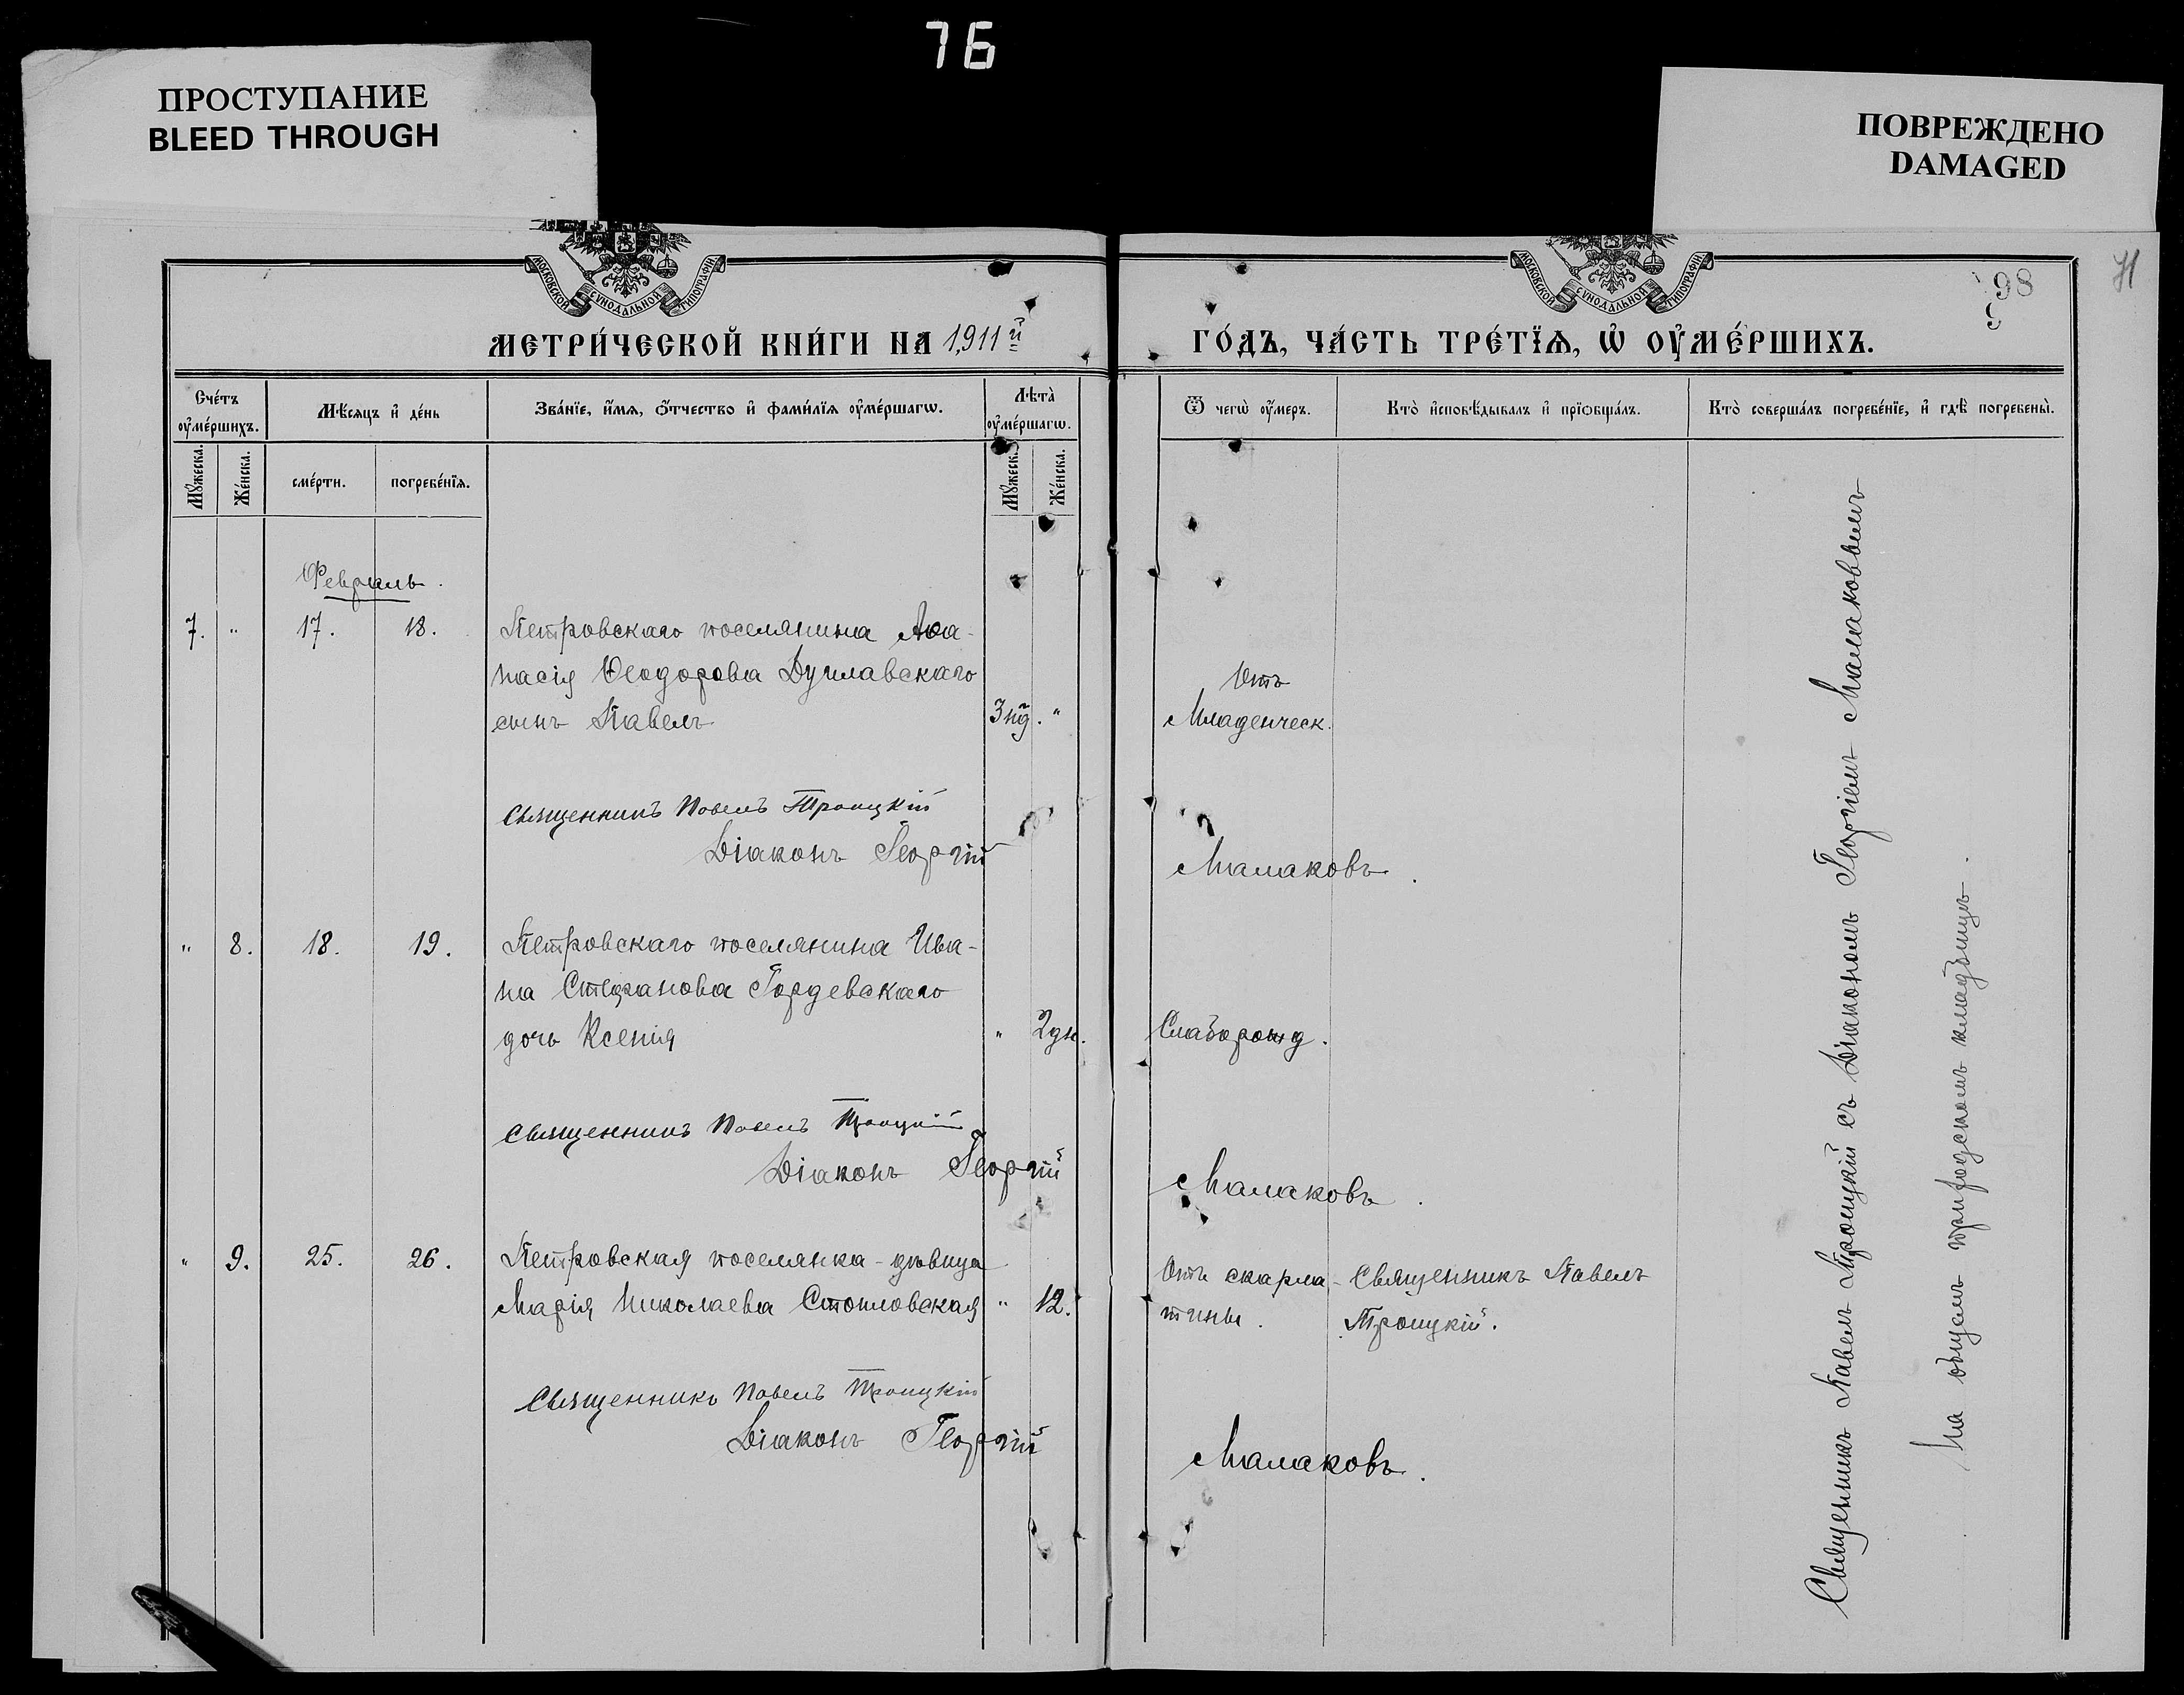 76
ПРОСТУПАНИЕ
BLEED THROUGH
ПОВРЕЖДЕНО
DAMAGED
МОСКОВСКОЙ СѴНОДАЛЬНОЙ ТИПОГРАФІИ
МОСКОВСКОЙ СѴНОДАЛЬНОЙ ТИПОГРАФІИ
98
МЕТРИ́ЧЕСКОЙ КНИ́ГИ НА 1911й
ГО́ДЪ, ЧА́СТЬ ТРЕ́ТЇѦ, Ѡ҆ ОУ҆МЕ́РШИХЪ.
Сче́тъ оу҆ме́ршихъ.
Мѣ́сяцъ и҆ де́нь
Зва́нїе, и҆́мя, ѻ҆́тчество и҆ фами́лїя оу҆ме́ршагѡ.
Лѣта̀ оу҆ме́ршагѡ.
Ѿ чегѡ̀ оу҆́меръ.
Кто̀ и҆сповѣ́дывалъ и҆ прїѡбща́лъ.
Кто̀ соверша́лъ погребе́нїе, и҆ гдѣ̀ погребены̀.
Мꙋ́жеска.
Же́нска.
сме́рти.
погребе́нїя.
Мꙋ́жеск.
Же́нска.
Февраль.
7. " 17. 18. Петровскаго поселянина Аѳа-
насія Ѳеодорова Дучлавскаго
сынъ Павелъ 3 нд. "
Отъ
Младенческ.
Священникъ Павелъ Троицкій
Діаконъ Георгій Малаковъ.
" 8. 18. 19. Петровскаго поселянина Ива-
на Стефанова Гордевскаго
дочь Ксенія " 2 дн. Слаборожд.
Священникъ Павелъ Троицкій
Діаконъ Георгій Малаковъ.
" 9. 25. 26. Петровская поселянка-дѣвица
Марія Николаева Стопловская " 12.
Отъ скарла-
тины.
Священникъ Павелъ
Троицкій.
Священникъ Павелъ Троицкій
Діаконъ Георгій Малаковъ.
Священникъ Павелъ Троицкій съ Діакономъ Георгіемъ Малаковымъ
На общемъ приходскомъ кладбищѣ.